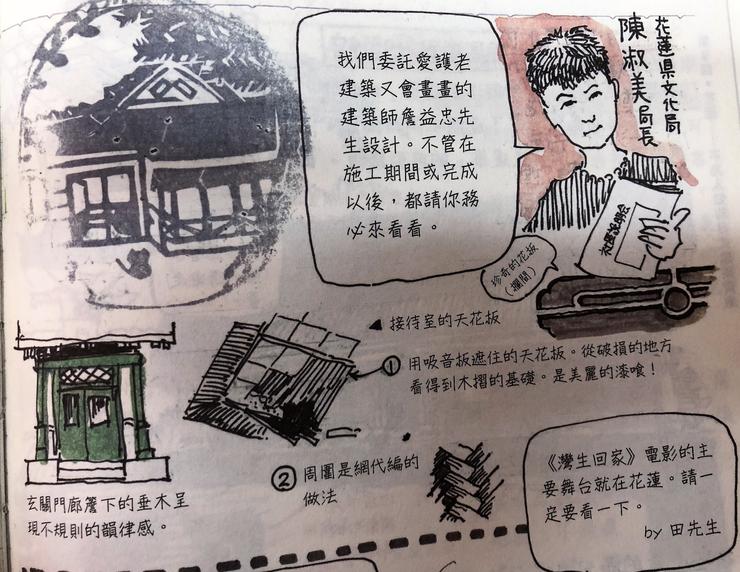 我們委託愛護老
建築又會畫畫的
建築師詹益忠先
生設計。不管在
施工期間或完成
以後，都請你務
必來看看。
花蓮県文化局
陳淑美局長
社區說明会
珍奇的花板
（欄間）
▲接待室的天花板
① 用吸音板遮住的天花板。從破損的地方
看得到木摺的基礎。是美麗的漆喰！
② 周圍是網代編的
做法
玄關門廊簷下的垂木呈
現不規則的韻律感。
《灣生回家》電影的主
要舞台就在花蓮。請一
定要看一下。
by 田先生